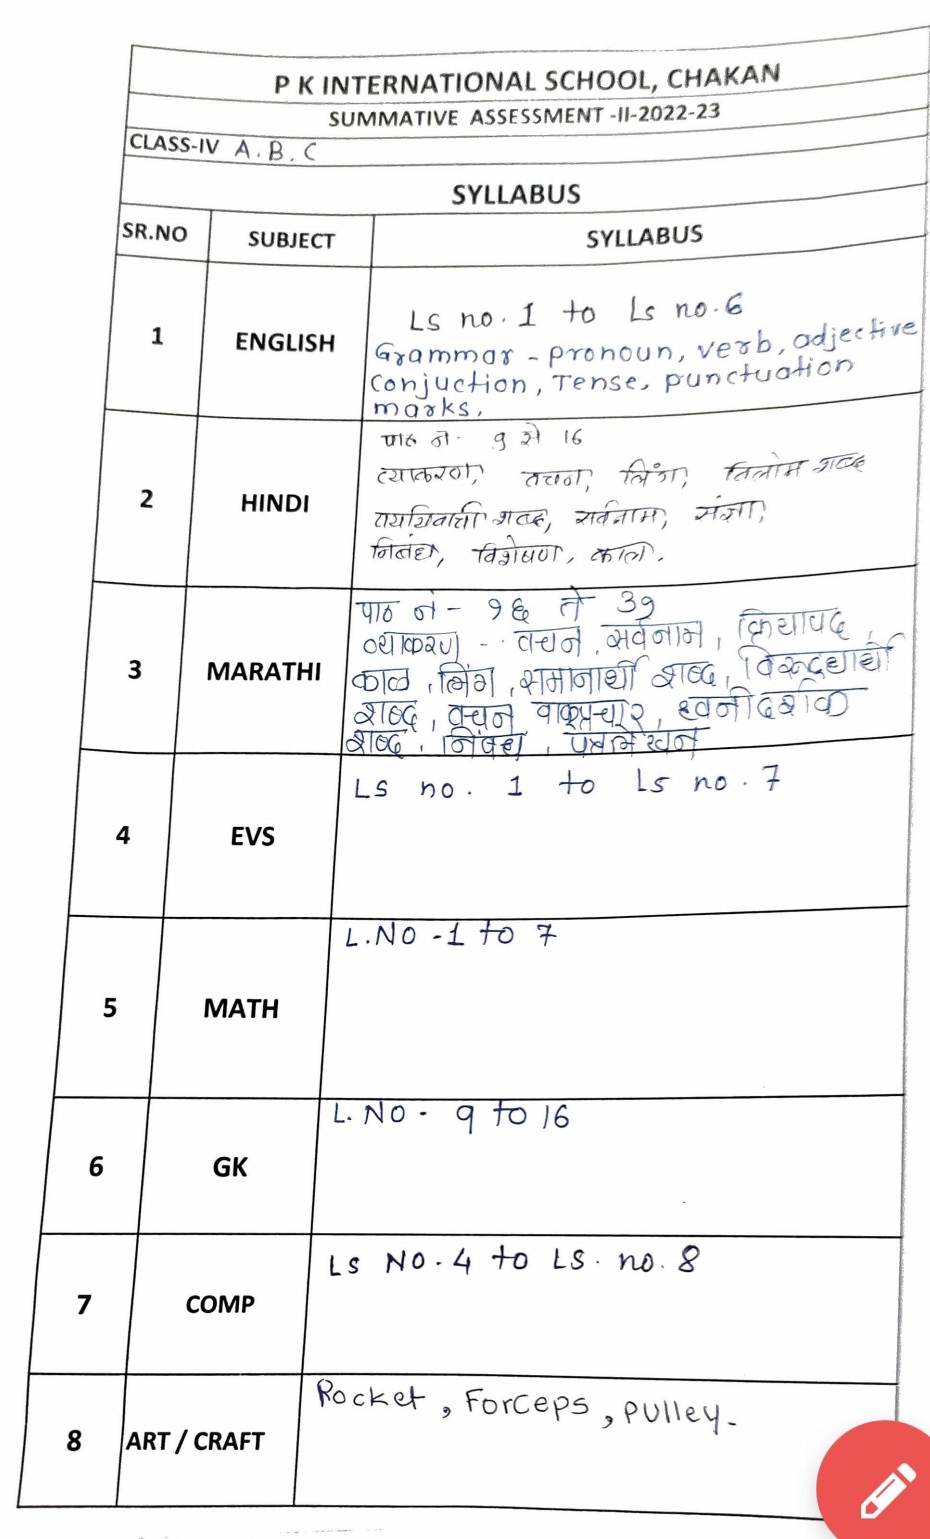 P K INTERNATIONAL SCHOOL, CHAKAN
SUMMATIVE ASSESSMENT -II-2022-23
CLASS-IV A.B.C
SYLLABUS
SR.NO SUBJECT SYLLABUS
1 ENGLISH
Ls no. 1 to Ls no.6
Grammar - pronoun, verb, adjective
conjuction, Tense, punctuation
marks.
2 HINDI
पाठ नं. 9 से 16
व्याकरण, वचन, लिंग, विलोम शब्द
पर्यायवाची शब्द, सर्वनाम, संज्ञा,
निबंध, विशेषण, काल.
3 MARATHI
पाठ नं - १६ ते ३१
व्याकरण - वचन, सर्वनाम, क्रियापद,
काळ, लिंग, समानार्थी शब्द, विरूद्धार्थी
शब्द, वचन वाक्प्रचार, ध्वनीदर्शक
शब्द, निबंध, पत्रलेखन
4 EVS
Ls no. 1 to Ls no. 7
5 MATH
L.NO -1 to 7
6 GK
L. NO - 9 to 16
7 COMP
Ls NO. 4 to LS. no. 8
8 ART / CRAFT
Rocket, Forceps, pulley.